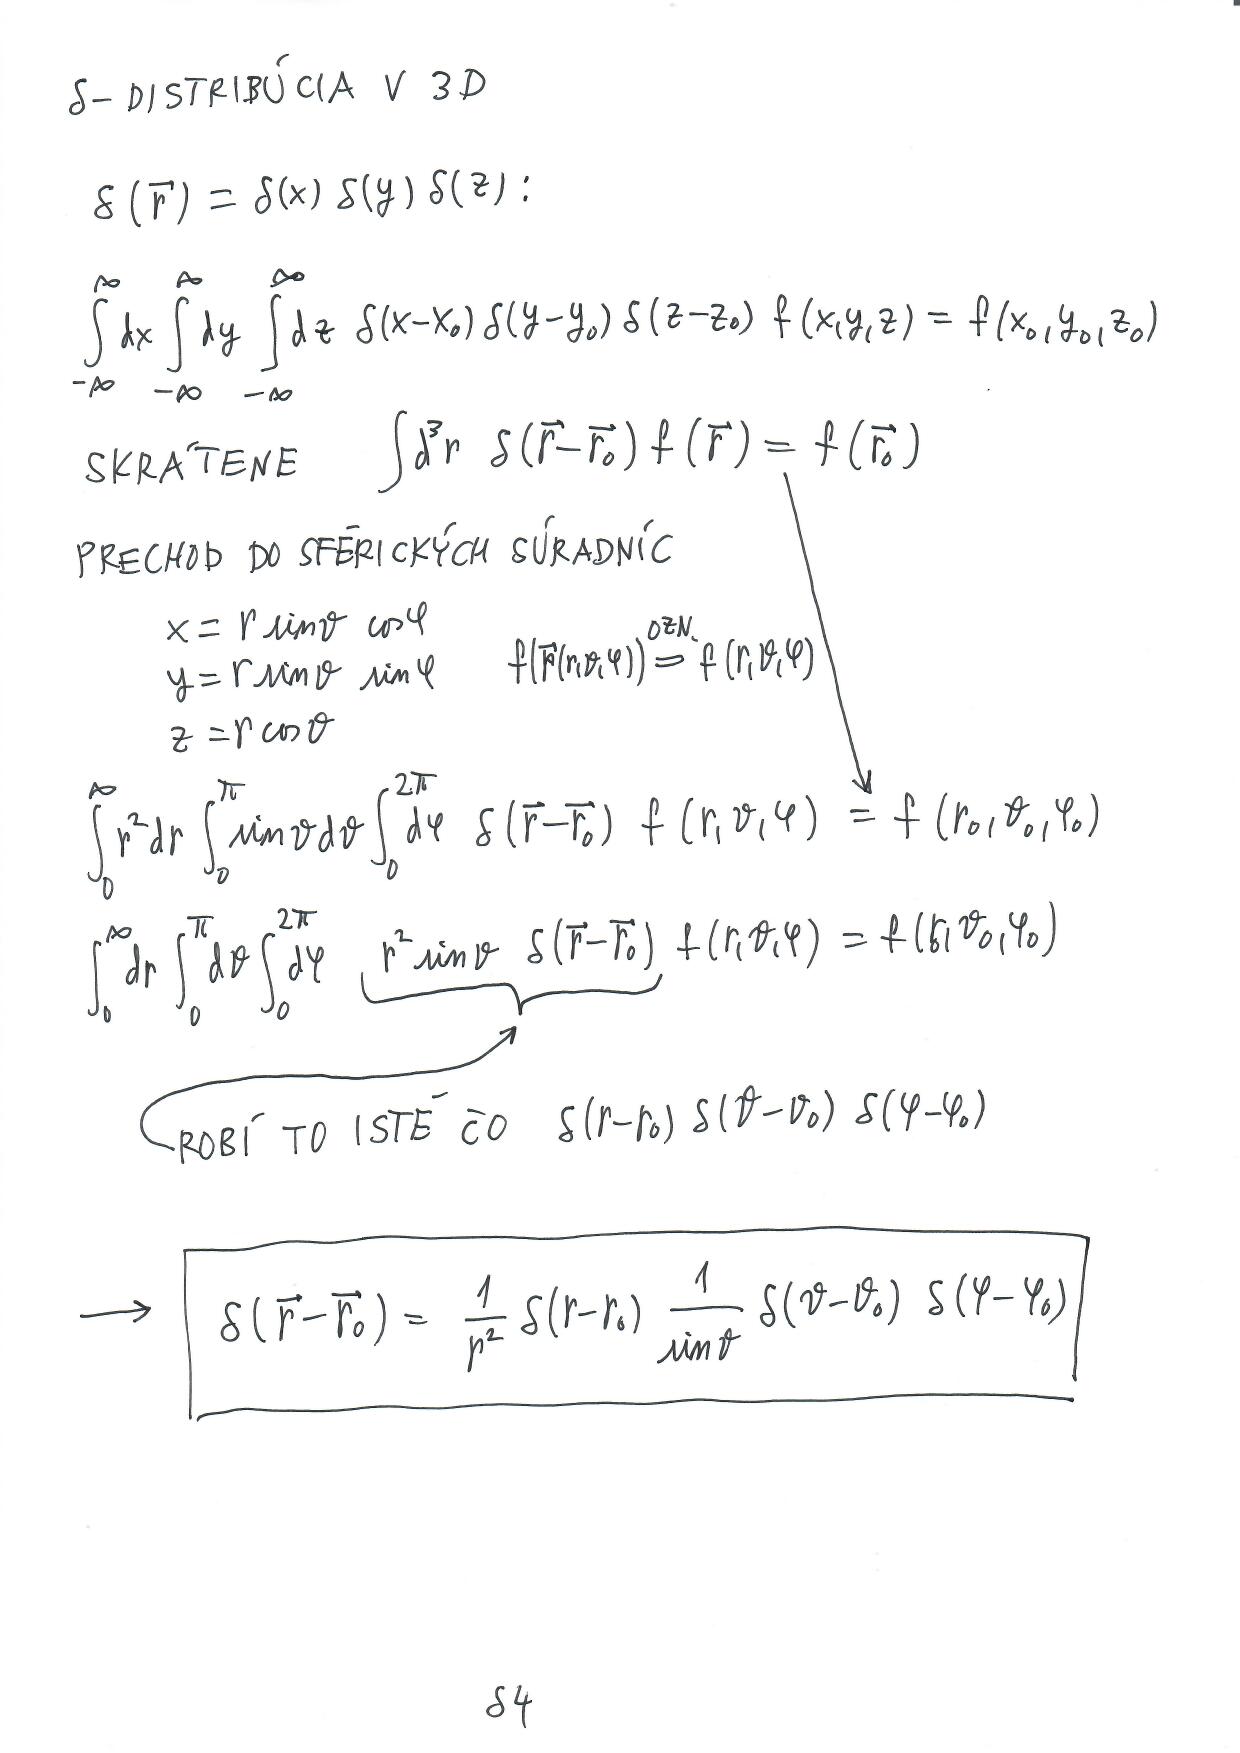 δ-DISTRIBÚCIA V 3D
δ(r⃗) = δ(x) δ(y) δ(z):
∫_{-∞}^{∞} dx ∫_{-∞}^{∞} dy ∫_{-∞}^{∞} dz δ(x-x₀) δ(y-y₀) δ(z-z₀) f(x,y,z) = f(x₀,y₀,z₀)
SKRÁTENE ∫d³r δ(r⃗-r⃗₀) f(r⃗) = f(r⃗₀)
PRECHOD DO SFÉRICKÝCH SÚRADNÍC
x = r sinϑ cosφ
y = r sinϑ sinφ f(r⃗(r,ϑ,φ)) =^{OZN.} f(r,ϑ,φ)
z = r cosϑ
∫_0^∞ r²dr ∫_0^π sinϑdϑ ∫_0^{2π} dφ δ(r⃗-r⃗₀) f(r,ϑ,φ) = f(r₀,ϑ₀,φ₀)
∫_0^∞ dr ∫_0^π dϑ ∫_0^{2π} dφ r² sinϑ δ(r⃗-r⃗₀) f(r,ϑ,φ) = f(r₀,ϑ₀,φ₀)
ROBÍ TO ISTÉ ČO δ(r-r₀) δ(ϑ-ϑ₀) δ(φ-φ₀)
→ δ(r⃗-r⃗₀) = 1/r² δ(r-r₀) 1/sinϑ δ(ϑ-ϑ₀) δ(φ-φ₀)
δ4